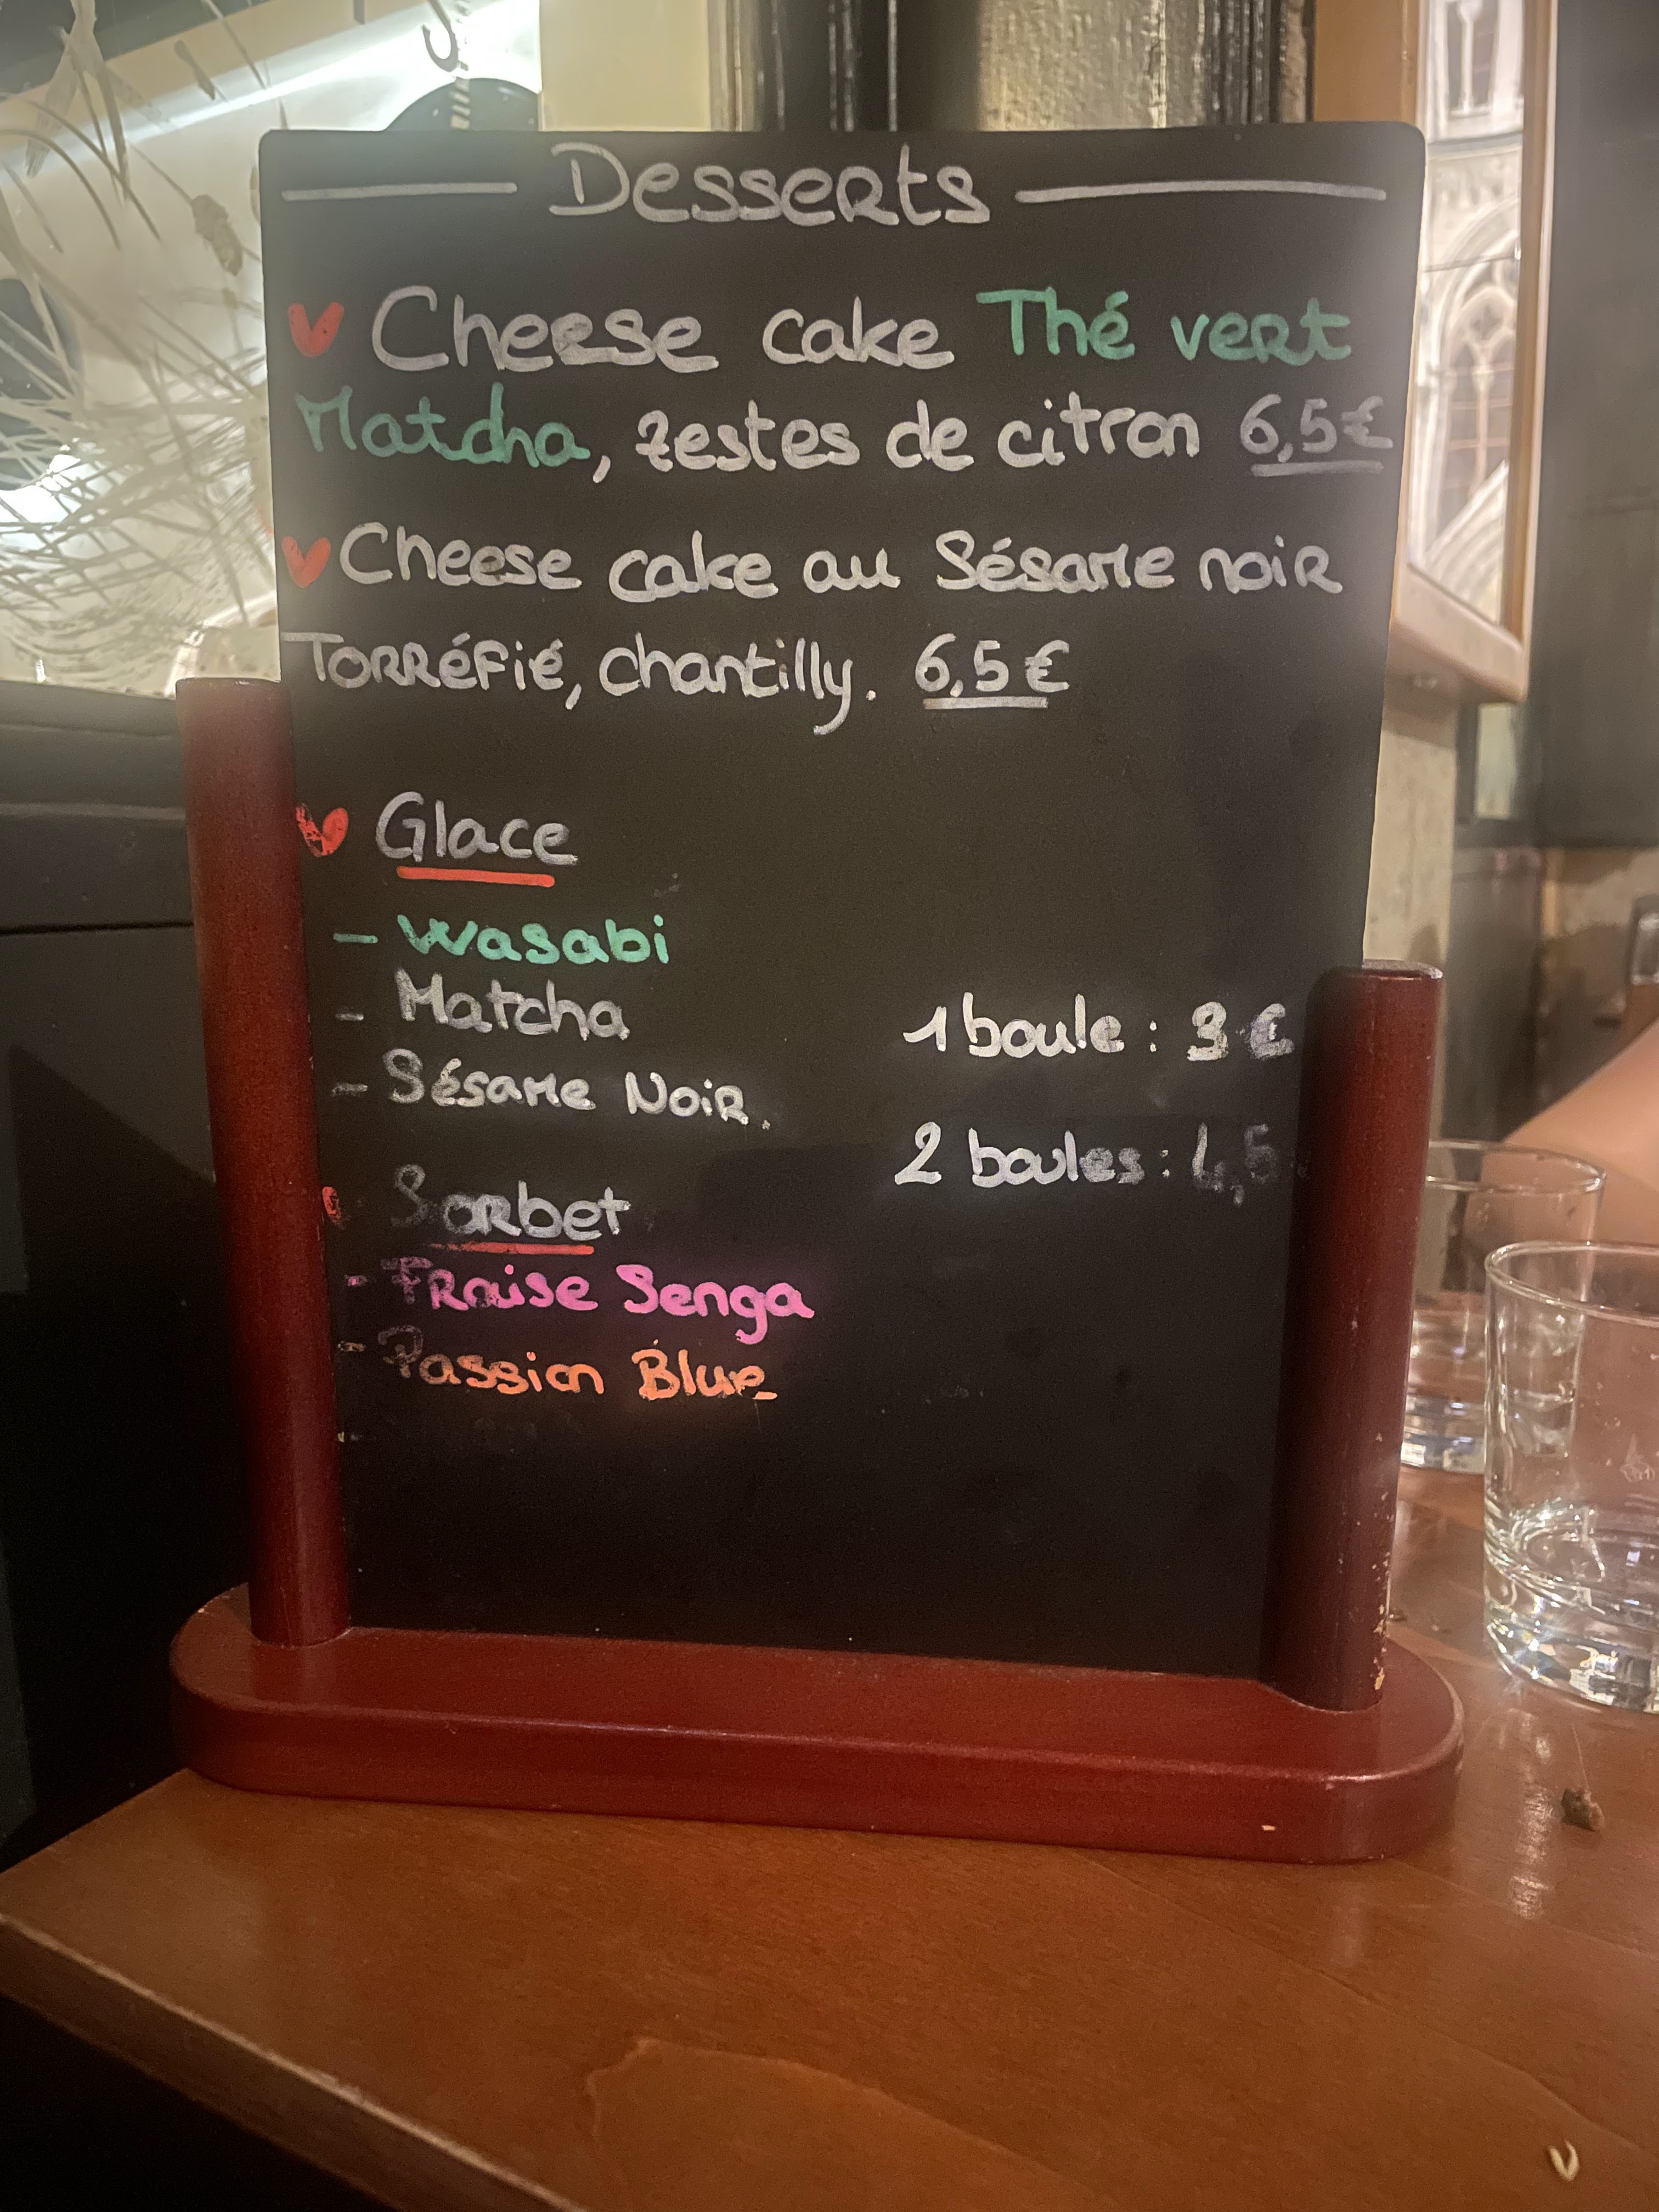 Desserts
Cheese cake Thé vert
Matcha, zestes de citron 6,5€
Cheese cake au Sésame noir
Torréfié, chantilly. 6,5€
Glace
- Wasabi
- Matcha
- Sésame Noir.
1 boule : 3 €
2 boules : 4,5
Sorbet
- Fraise Senga
- Passion Blue